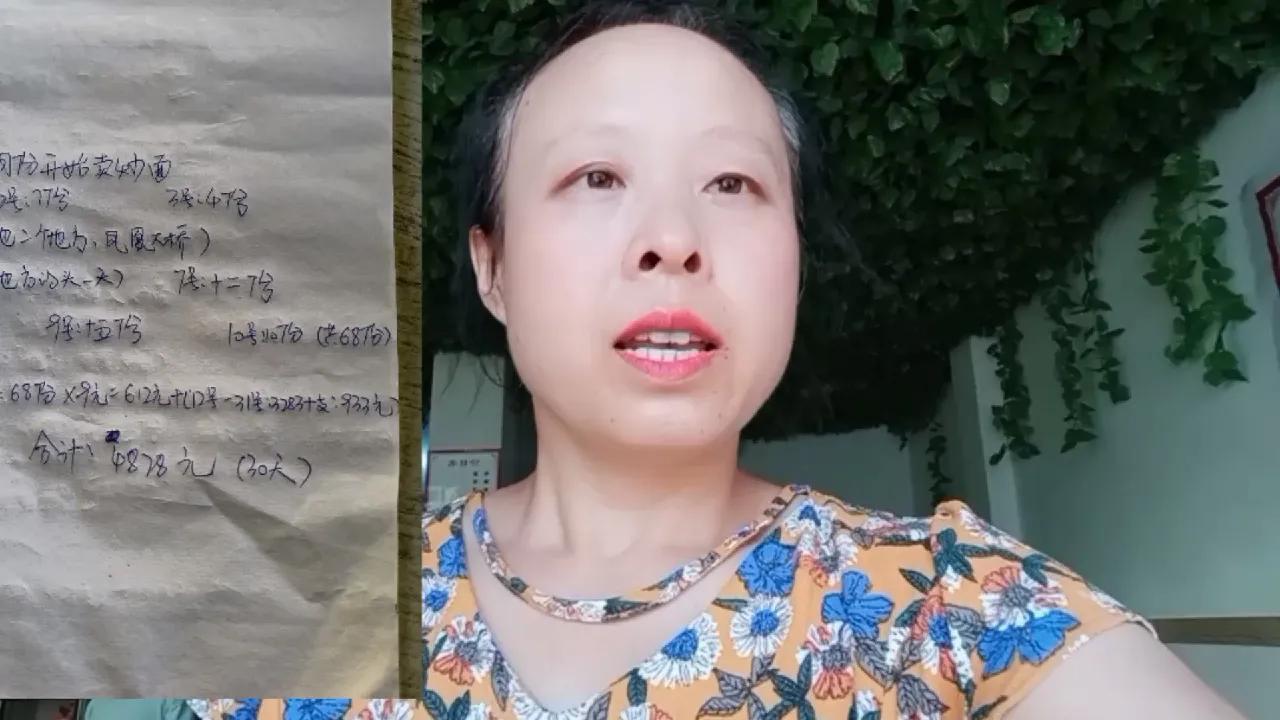 份开始卖炒面
2号:7份 3号:4份
二个地方,凤凰大桥)
地方的头一天) 7号:十二份
9号:十五份 10号:10份(共68份)
68份×9元=612元+(12号-31号:3283+支:933元)
合计:4828元(30天)